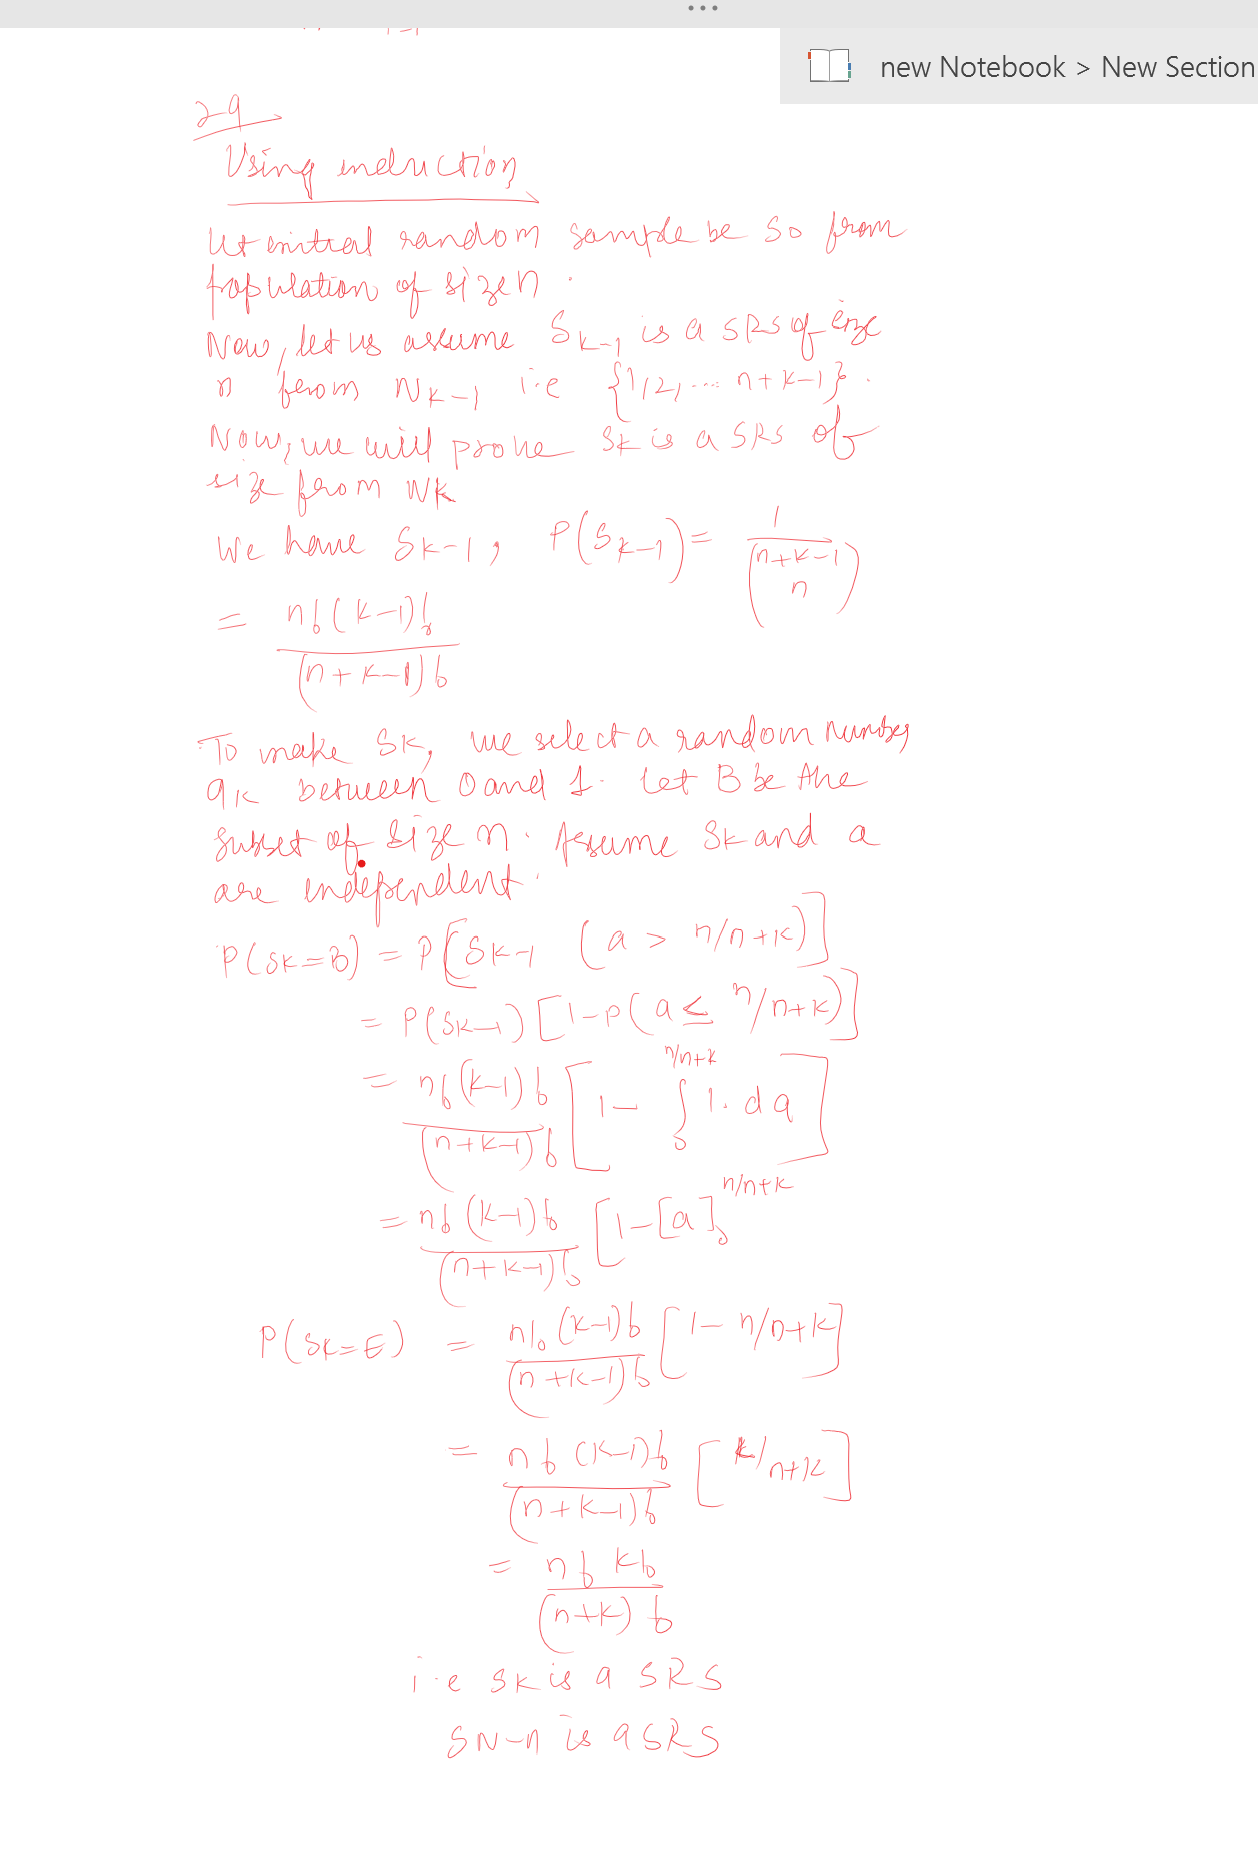 new Notebook > New Section
29
Using induction
let initial random sample be S0 from
population of size n.
Now, let us assume Sk-1 is a SRS of size
n from Nk-1 i.e {1,2,... n+k-1}.
Now, we will prove Sk is a SRS of
size from Nk
We have Sk-1, P(Sk-1) = 1/(n+k-1 n)
= n!(k-1)!/(n+k-1)!
To make Sk, we select a random number
ak between 0 and 1. Let B be the
subset of size n. Assume Sk and a
are independent.
P(Sk=B) = P[Sk-1 (a > n/n+k)]
= P(Sk-1)[1-p(a ≤ n/n+k)]
= n!(k-1)!/(n+k-1)! [1- ∫0^n/n+k 1.da]
= n!(k-1)!/(n+k-1)! [1-[a]0^n/n+k
P(Sk=E) = n!(k-1)!/(n+k-1)! [1- n/n+k]
= n!(k-1)!/(n+k-1)! [k/n+k]
= n! k!/(n+k)!
i.e Sk is a SRS
SN-n is a SRS